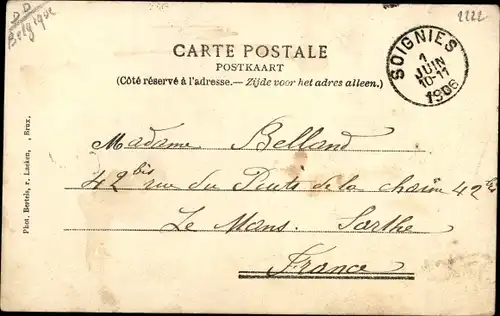 DD
Belgique
2222
CARTE POSTALE
POSTKAART
(Côté réservé à l'adresse.— Zijde voor het adres alleen.)
SOIGNIES
1
JUIN
10-11
1906
Madame Belland
42bis rue du Puits de la chaîne 42bis
Le Mans. Sarthe
France
Phot. Bertels, r. Laeken, , Brux.